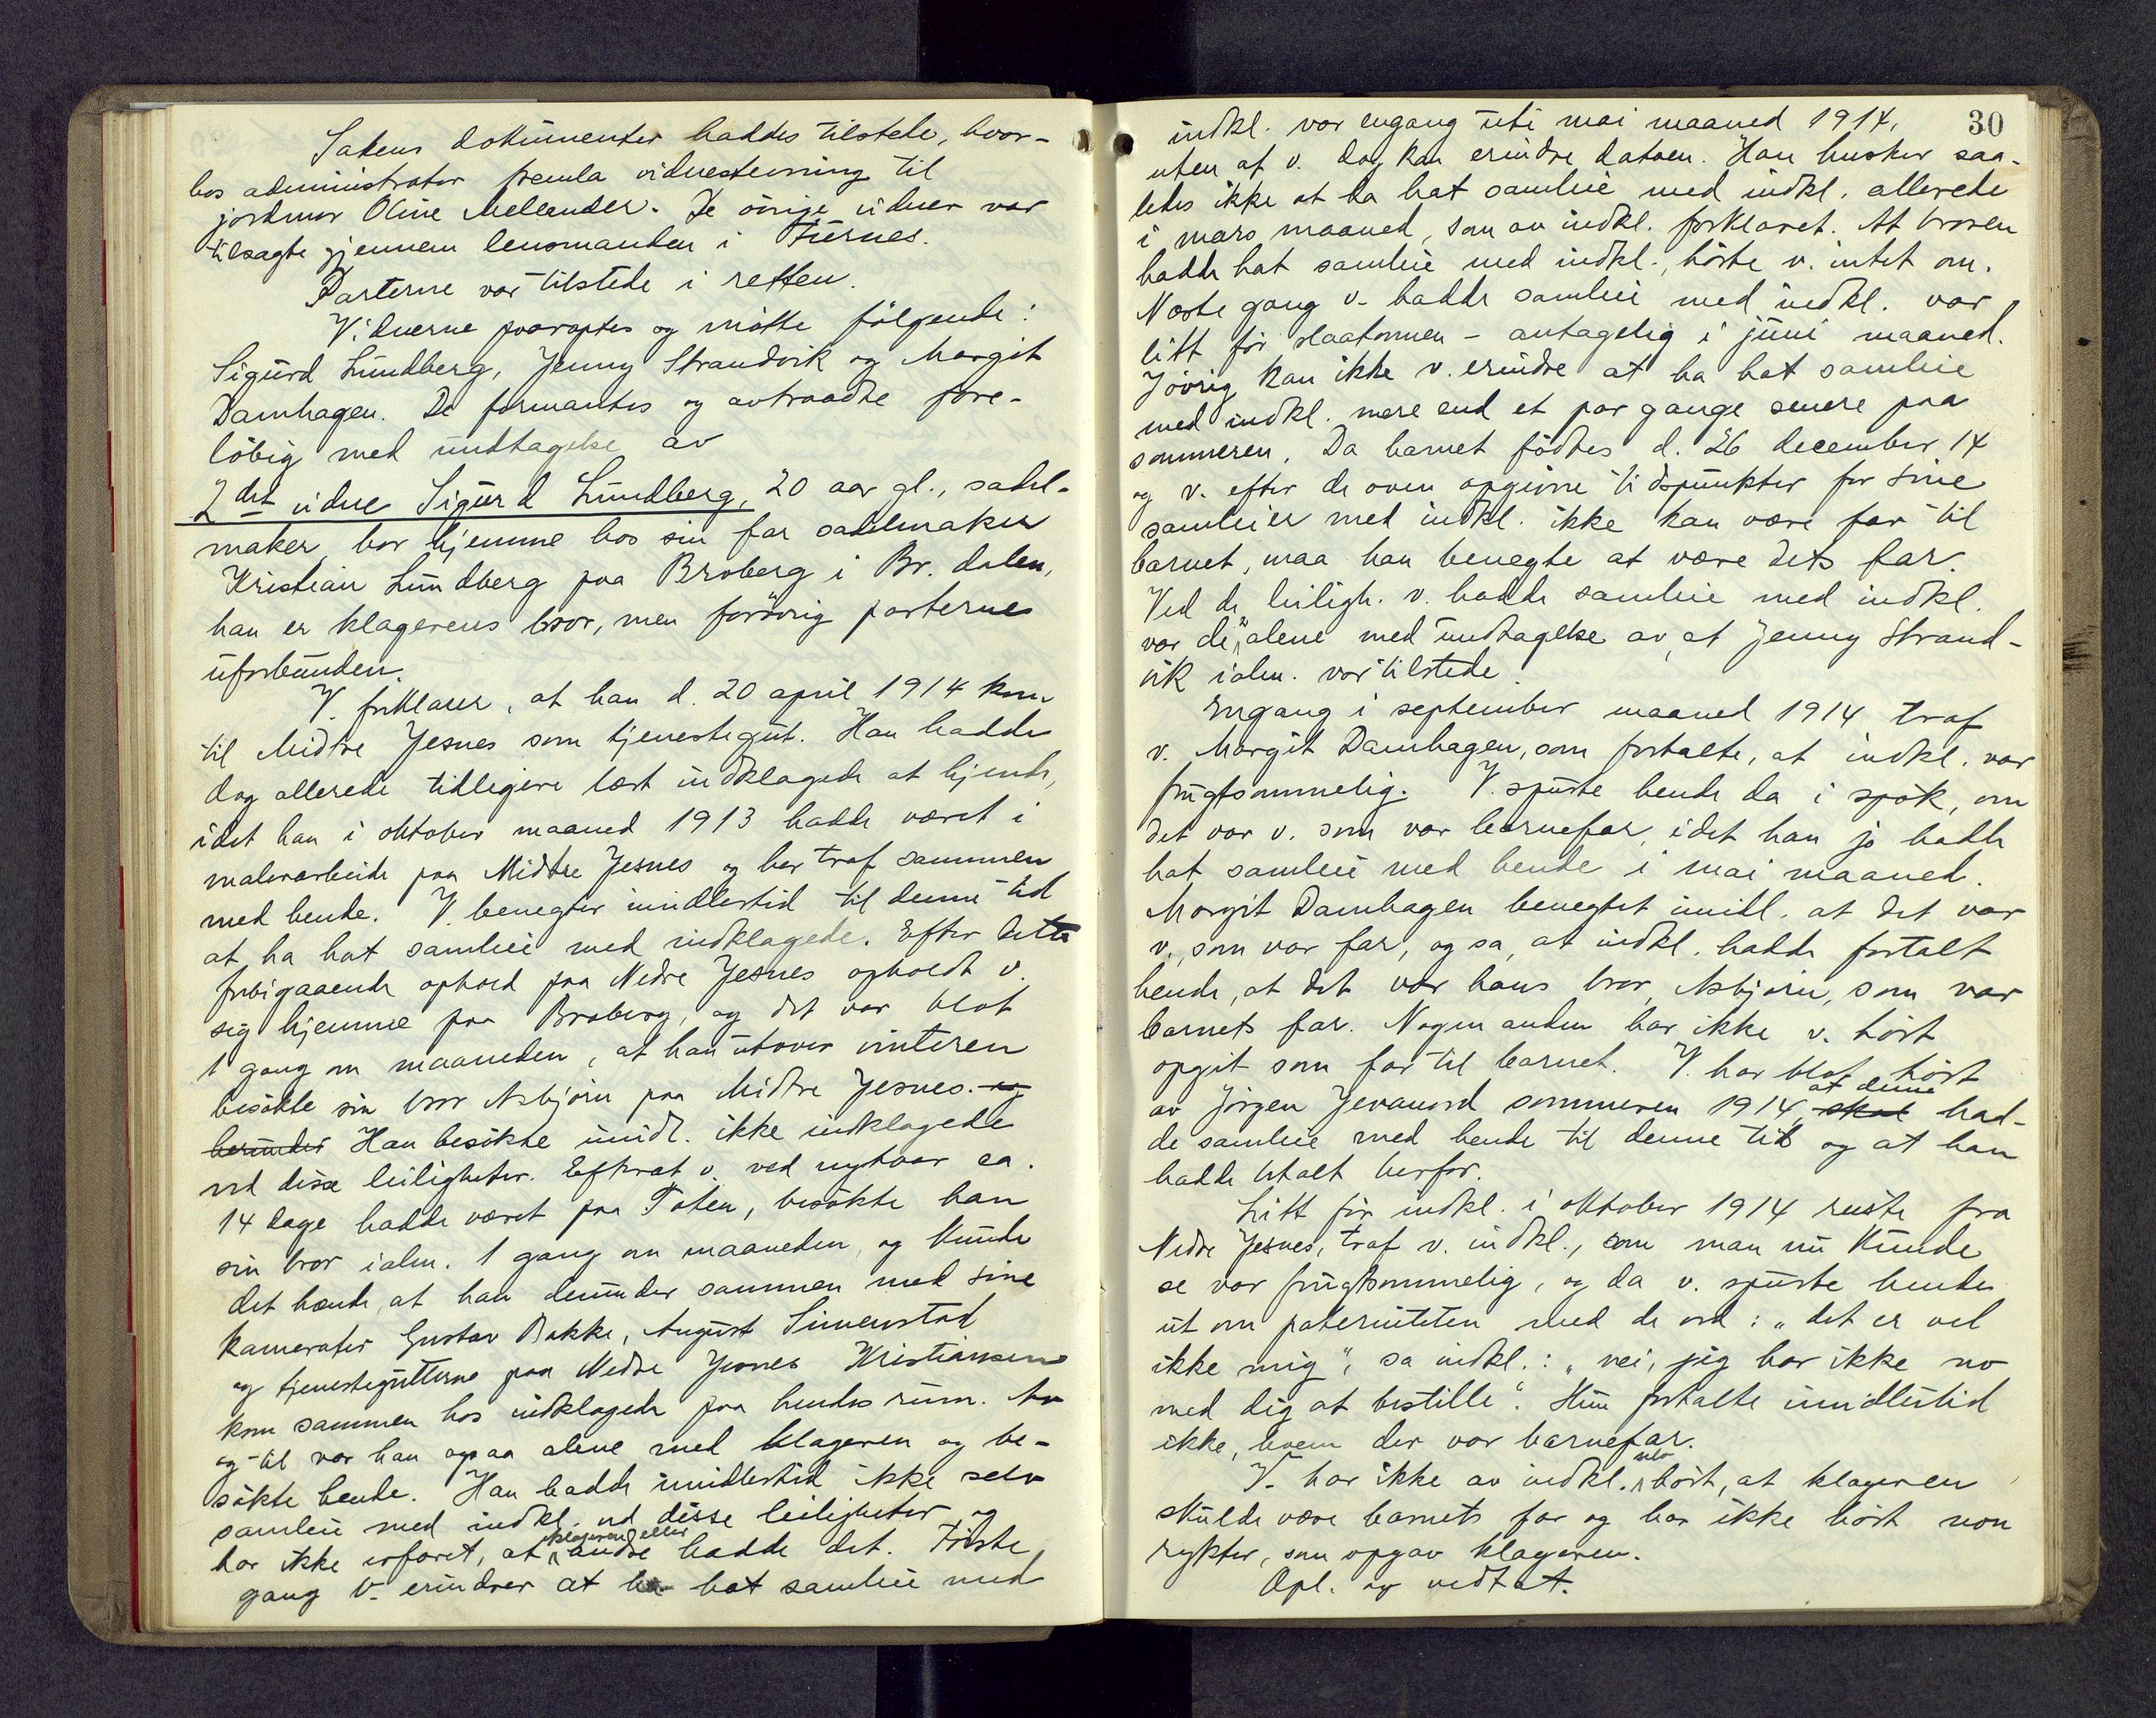 Sakens dokumenter haddes tilstede, hvor-
hos administrator fremla vidnestevning til
jordmor Oline Mellander. De övrige vidner var
tilsagte gjennem lensmanden i Furnes.
Parterne var tilstede i retten.
Vidnerne paaroptes og mötte fölgende:
Sigurd Lundberg, Jenny Strandvik og Margit
Damhagen. De formantes og avtraadte fore-
löbig med undtagelse av
2det vidne Sigurd Lundberg, 20 aar gl., sadel-
maker, bor hjemme hos sin far sadelmaker
Kristian Lundberg paa Broberg i Br. dalen,
han er klagerens bror, men forövrig parterne
uforbunden.
V. forklarer, at han d. 20 april 1914 kom
til Midtre Jesnes som tjenestegut. Han hadde
dog allerede tidligere lært indklagede at kjende,
idet han i oktober maaned 1913 hadde været i
malerarbeide paa Midtre Jesnes og her traf sammen
med hende. V. benegter imidlertid til denne tid
at ha hat samleie med indklagede. Efter dette
forbigaaende ophold paa Nedre Jesnes opholdt v.
sig hjemme paa Broberg, og det var blot
1 gang om maaneden, at han utover vinteren
besökte sin bror Asbjörn paa Midtre Jesnes. og
herunder Han besökte imidl. ikke indklagede
ved disse leiligheter. Efterat v. ved nytaar ca.
14 dage hadde været paa Toten, besökte han
sin bror ialm. 1 gang om maaneden, og kunde
det hænde, at han derunder sammen med sine
kamerater Gustav Bakke, August Simenstad
og tjenestegutterne paa Nedre Jesnes Kristiansen
kom sammen hos indklagede paa hendes rum. Av
og til var han ogsaa alene med klageren og be-
sökte hende. Han hadde imidlertid ikke selv
samleie med indkl. ved disse leiligheter og
har ikke erfaret, at klageren eller andre hadde det. Förste
gang v. erindrer at ha hat samleie med
30
indkl. var engang uti mai maaned 1914,
uten at v. dog kan erindre datoen. Han husker saa-
ledes ikke at ha hat samleie med indkl. allerede
i mars maaned, som av indkl. forklaret. At broren
hadde hat samleie med indkl., hörte v. intet om.
Næste gang v. hadde samleie med indkl. var
litt för slaatonnen - antagelig i juni maaned.
Iövrig kan ikke v. erindre at ha hat samleie
med indkl. mere end et par gange senere paa
sommeren. Da barnet födtes d. 26 december 14
og v. efter de oven opgivne tidspunkter for sine
samleier med indkl. ikke kan være far til
barnet, maa han benegte at være dets far.
Ved de leiligh. v. hadde samleie med indkl.
var de alene med undtagelse av, at Jenny Strand-
vik ialm. var tilstede.
Engang i september maaned 1914 traf
v. Margit Damhagen, som fortalte, at indkl. var
frugtsommelig. V. spurte hende da i spök, om
det var v. som var barnefar, idet han jo hadde
hat samleie med hende i mai maaned.
Margit Damhagen benegtet imidl. at det var
v., som var far, og sa, at indkl. hadde fortalt
hende, at det var hans bror, Asbjörn, som var
barnets far. Nogen anden har ikke v. hört
opgit som far til barnet. V. har blot hört
av Jörgen Jevanord sommeren 1914, skal at denne had-
de samleie med hende til denne tid og at han
hadde betalt herfor.
Litt för indkl. i oktober 1914 reiste fra
Nedre Jesnes, traf v. indkl., som man nu kunde
se var frugtsommelig, og da v. spurte hende
ut om paterniteten med de ord: "det er vel
ikke mig", sa indkl.: "nei, jeg har ikke no
med dig at bestille". Hun fortalte imidlertid
ikke, hvem der var barnefar.
V. har ikke av indkl. selv hört, at klageren
skulde være barnets far og har ikke hört non
rykter, som opgav klageren.
Opl. og vedtat.